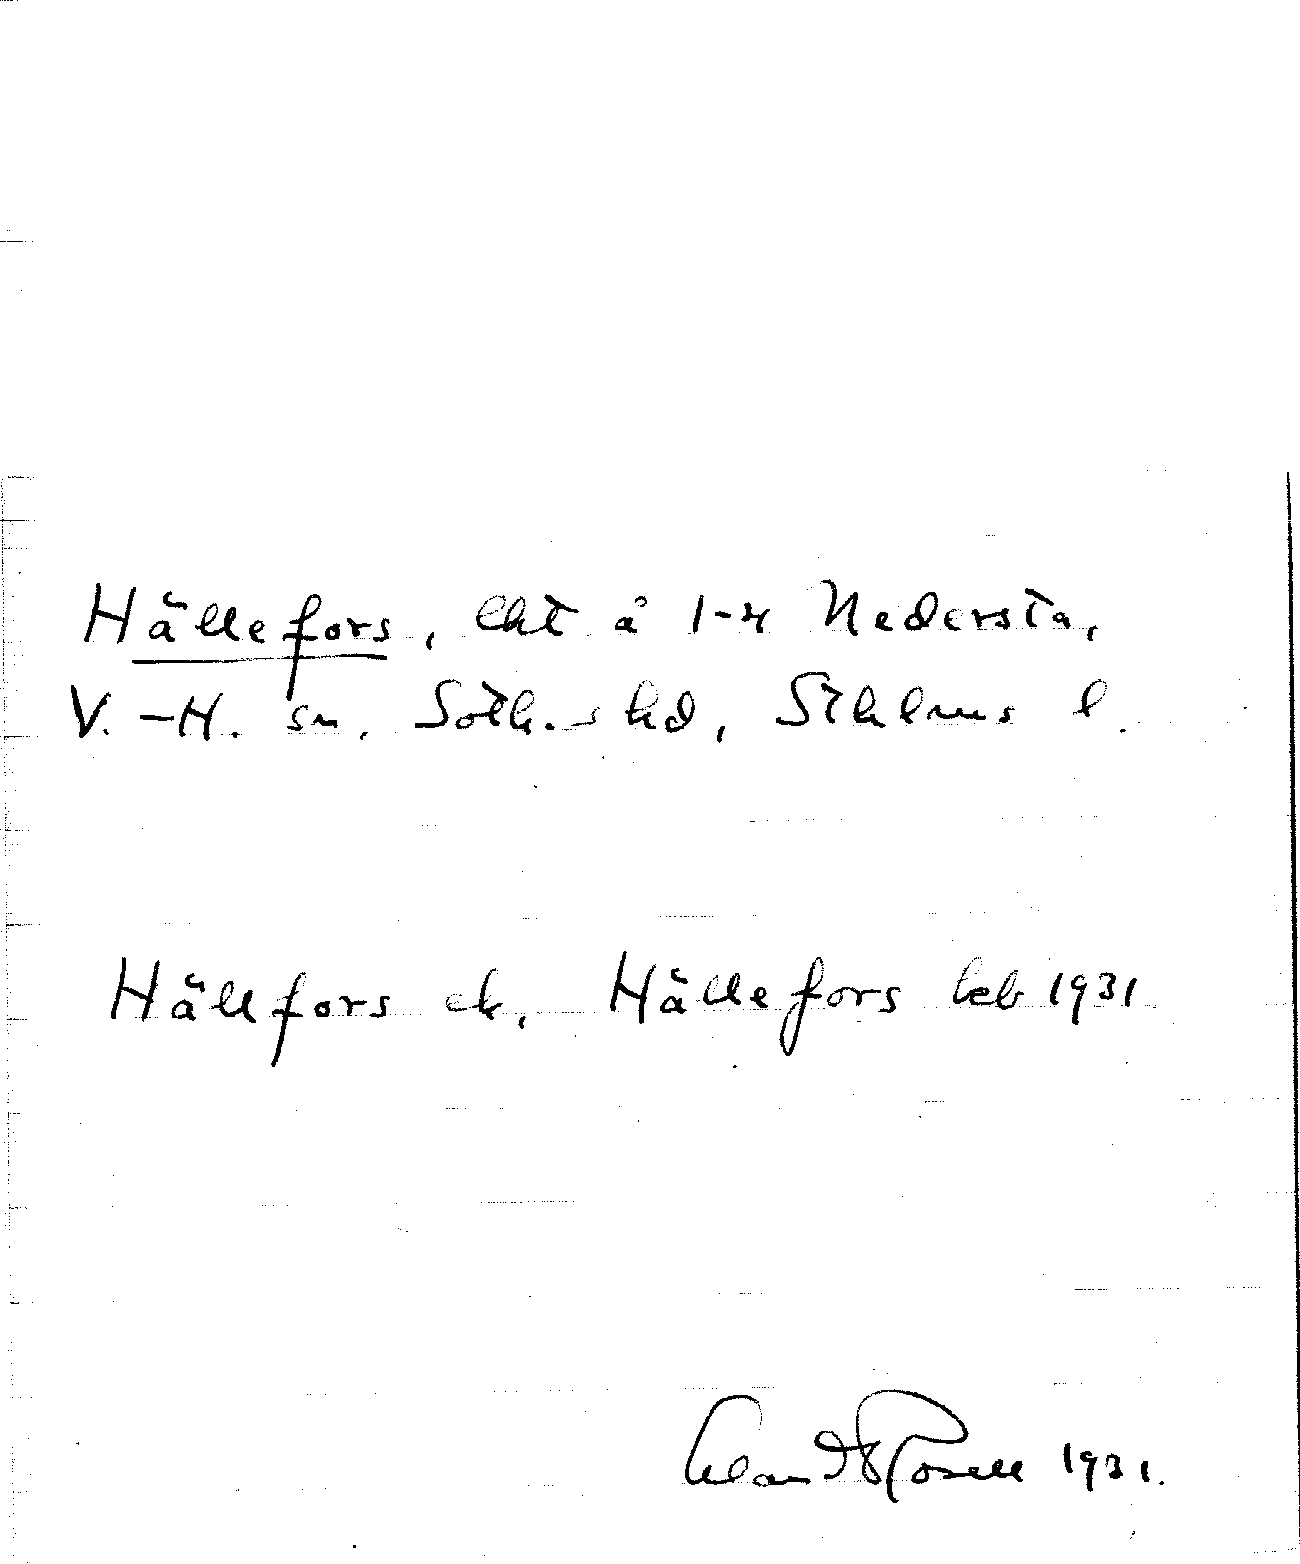 Hällefors, lht å 1-4 Nedersta,
V.-H. sn, Soth.s hd, Sthlms l.
Hällfors ek, Hällefors leb 1931
1931.